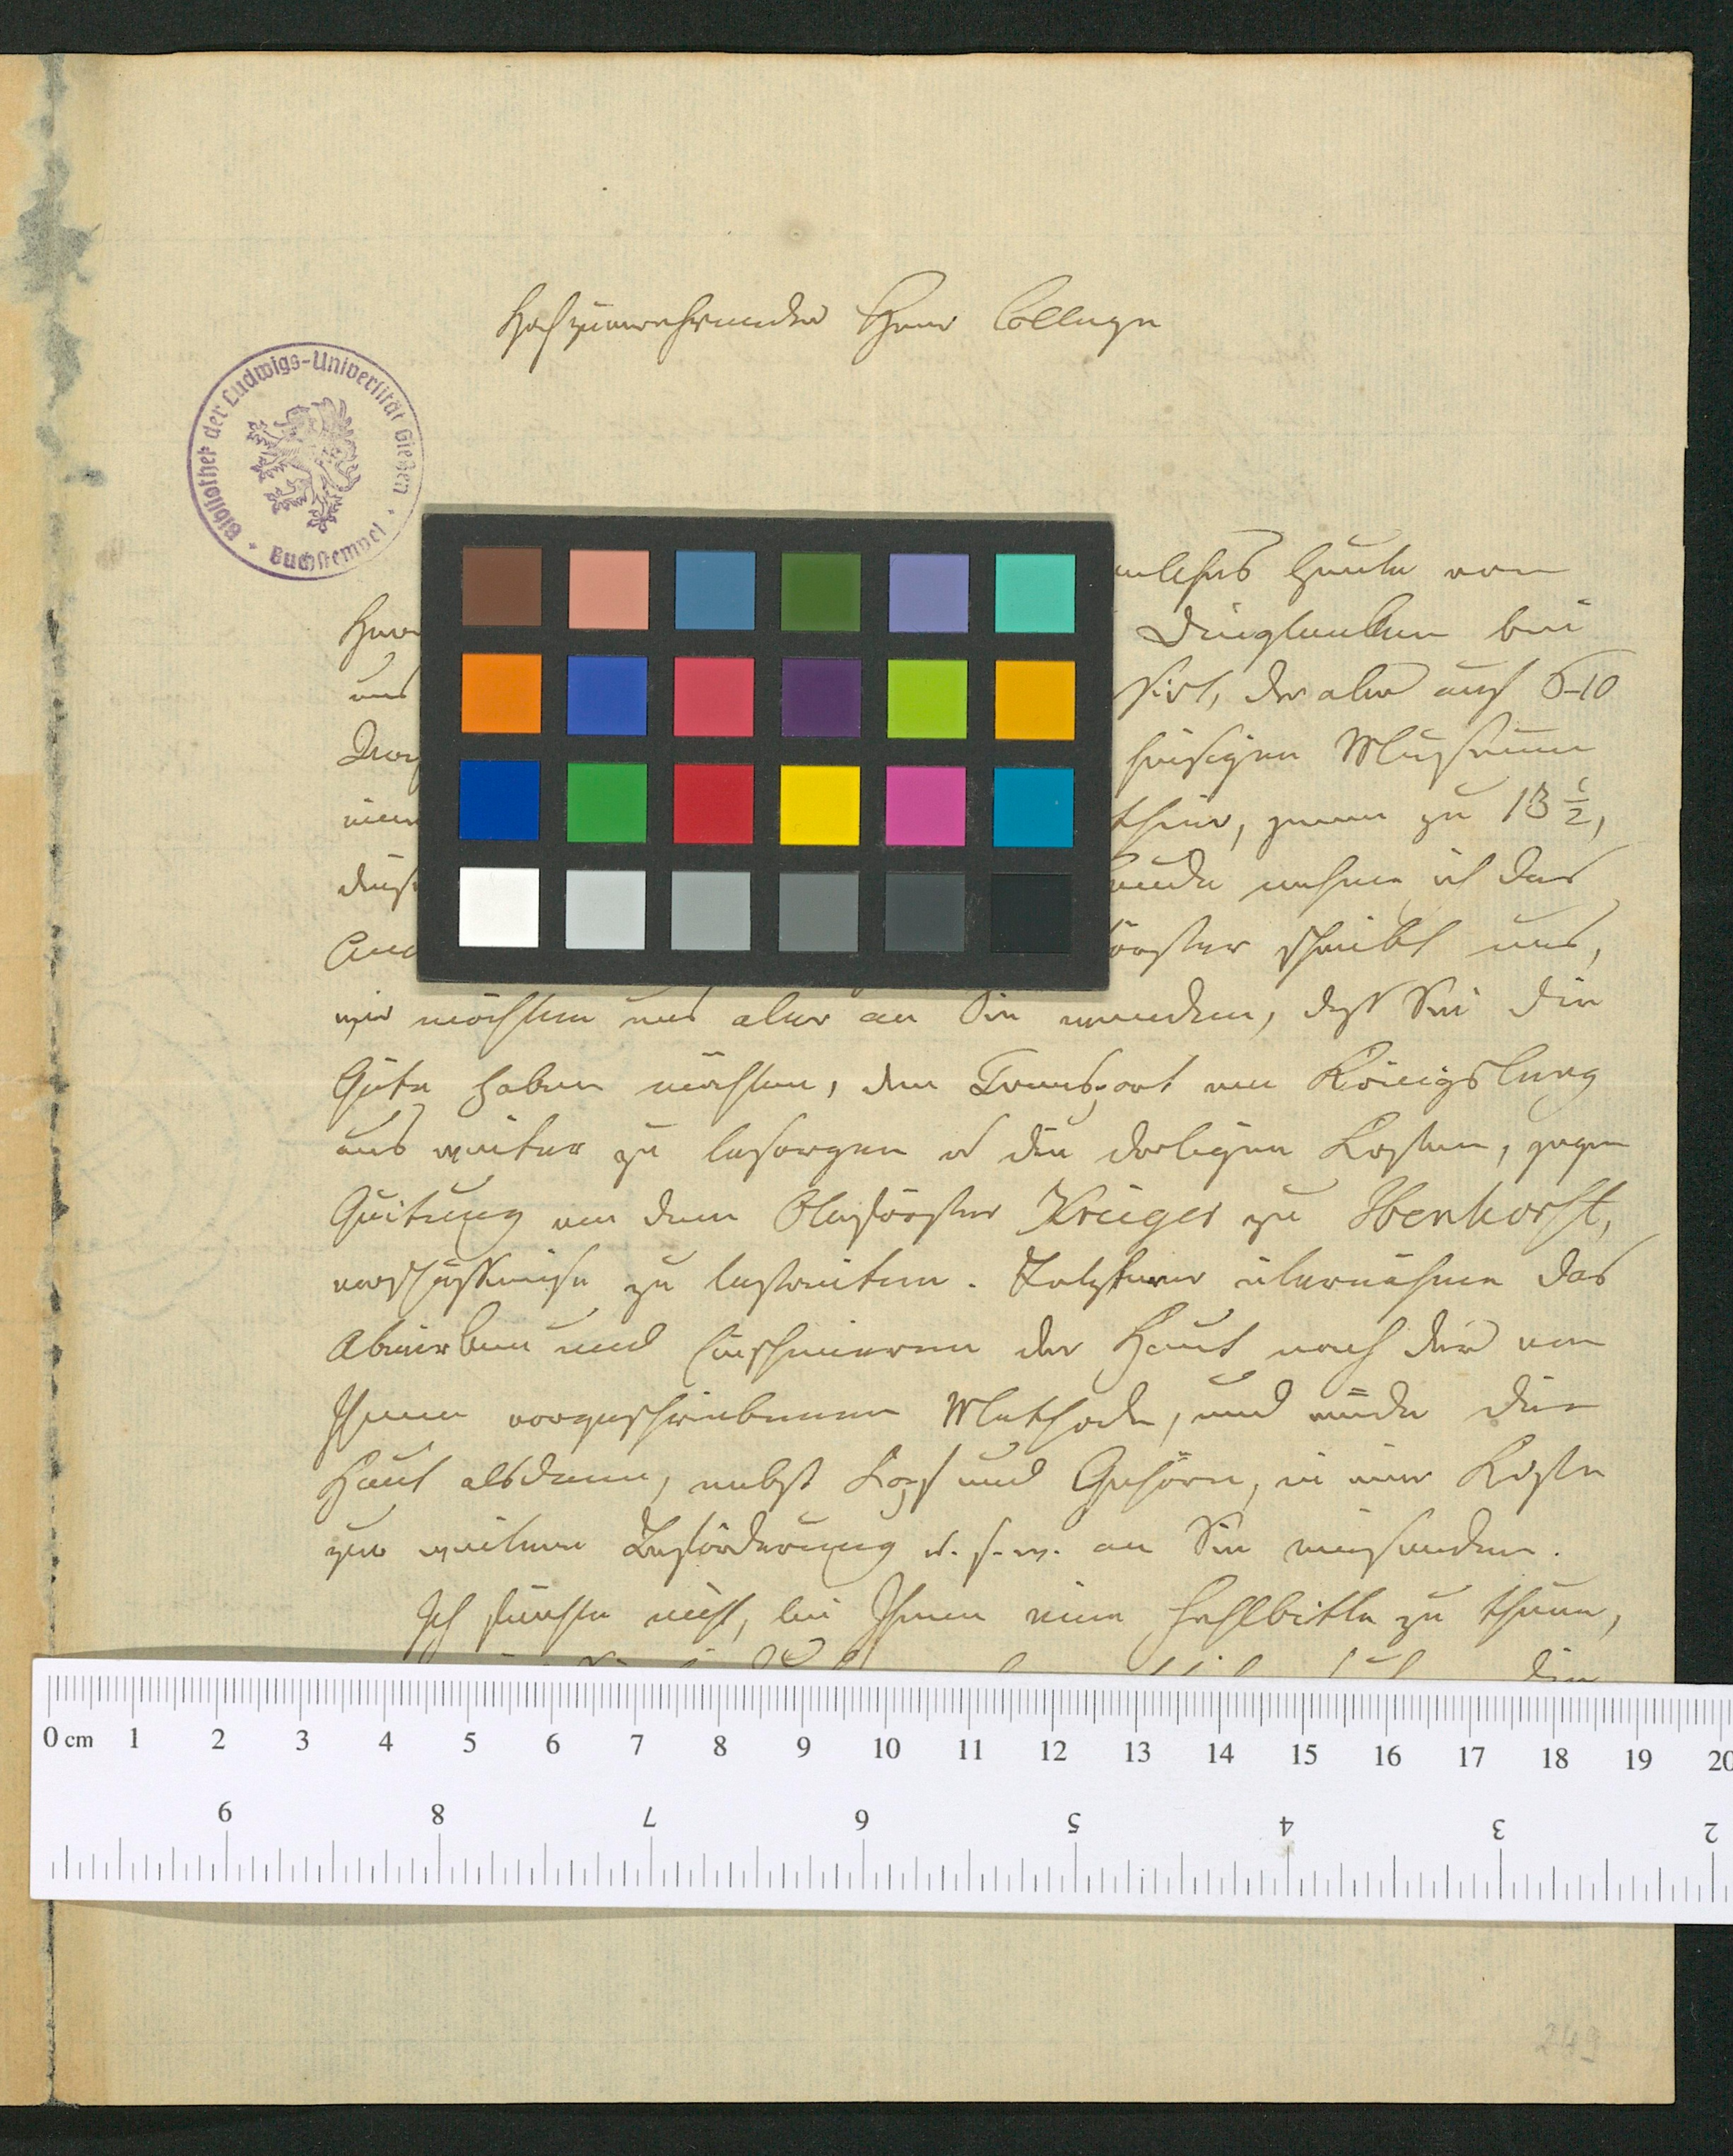 Hochzuverehrender Herr College
Bibliothek der Ludwigs-Universität Gießen
Buchstempel
welches heute von
Herrn
bei
uns der aber auf 6–10
hiesigen Museum
thier, gerne zu 13 1/2,
nehme ich das
schreibt uns,
wir möchten uns aber an Sie wenden, daß Sie die
Güte haben möchten, den Transport von Königsberg
aus weiter zu besorgen u die dortigen Kosten, gegen
Quitung von dem Oberförster Krüger zu Ibenhorst,
vorschußweise zu bestreiten. Letzterer übernähme das
Abwirken und Einschmieren der Haut nach der von
Ihnen vorgeschriebenen Methode, und würde die
Haut alsdann, nebst Kopf und Gehörn, in einer Kiste
zur weitern Beförderung u. s. w. an Sie einsenden.
Ich fürchte nicht, bei Ihnen eine Fehlbitte zu thuen,
die
0 cm 1 2 3 4 5 6 7 8 9 10 11 12 13 14 15 16 17 18 19 20
9 8 7 6 5 4 3 2
249